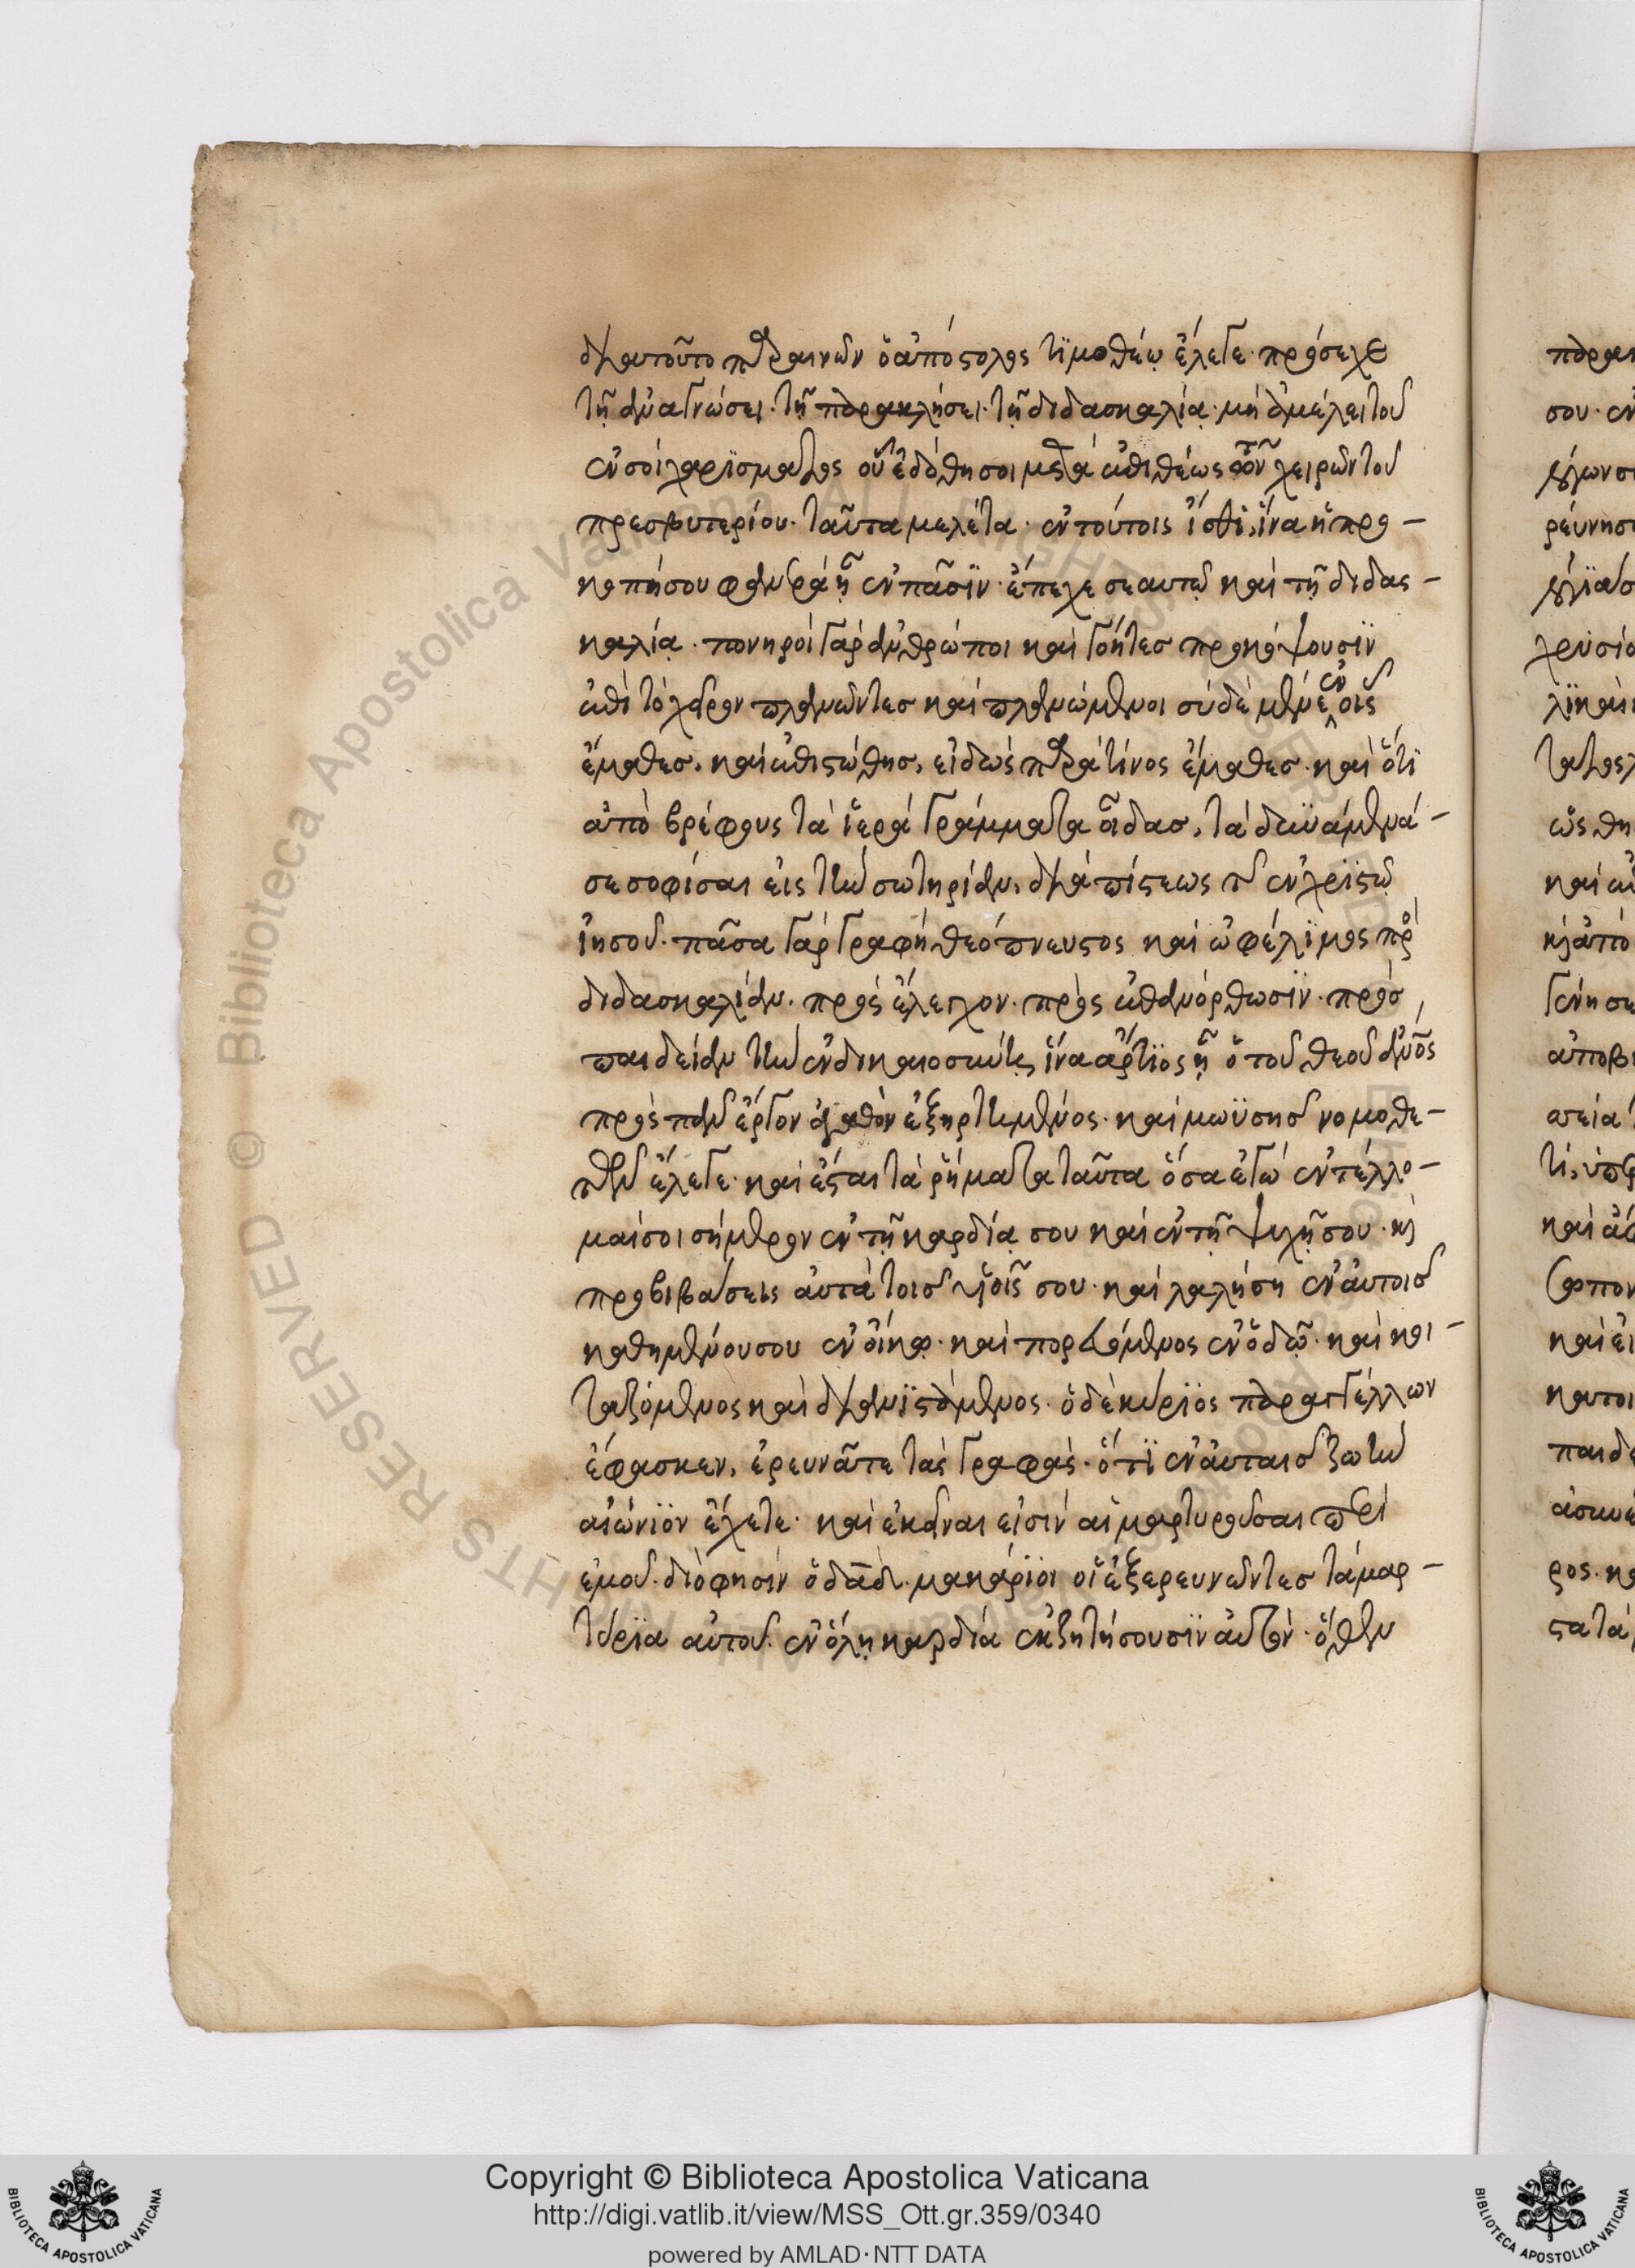 διατοῦτο παραινῶν ὁ ἀπόστολος τϊμοθέῳ ἔλεγε· πρόσεχε
τῇ ἀναγνώσει· τῇ παρακλήσει· τῇ διδασκαλίᾳ· μὴ ἀμέλει τοῦ
ἐν σοὶ χαρΐσματος οὗ ἐδόθη σοι μετὰ ἐπιθέως τῶν χειρῶν τοῦ
πρεσβυτερίου· ταῦτα μελέτα· ἐν τούτοις ἴσθϊ, ἵνα ἡ προ–
κοπή σου φανερὰ ᾖ ἐν πᾶσϊν· ἔπεχε σεαυτῷ καὶ τῇ διδας–
καλίᾳ· πονηροὶ γὰρ ἀνθρώποι καὶ γόητες προκόψουσϊν
ἐπὶ τὸ χεῖρον πλανῶντες καὶ πλανώμενοι σὺ δὲ μένε ἐν οἷς
ἔμαθες, καὶ ἐπιστώθης, εἰδὼς παρὰ τίνος ἔμαθες· καὶ ὅτϊ
ἀπὸ βρέφους τὰ ἱερὰ γράμματα οἶδας, τὰ δυνάμενά–
σε σοφίσαι εἰς τὴν σωτηρίαν, διὰ πίστεως τῆς ἐν χρϊστῷ
ἰησοῦ· πᾶσα γὰρ γραφὴ θεόπνευστος καὶ ὠφέλϊμος πρὸς
διδασκαλίαν· πρὸς ἔλειχον· πρὸς ἐπανόρθωσϊν· πρὸς
παιδείαν τὴν ἐν δικαιοσύνῃ, ἵνα ἄρτϊος ᾖ ὁ τοῦ θεοῦ ἄνος
πρὸς πᾶν ἔργον ἀγαθὸν ἐξηρτημένος· καὶ μωϋσῆς νομοθε–
τῶν ἔλεγε· καὶ ἔσται τὰ ῥήματα ταῦτα ὅσα ἐγὼ ἐντέλλο–
μαί σοι σήμερον ἐν τῇ καρδίᾳ σου καὶ ἐν τῇ ψυχῇ σου· κὶ
προβιβάσεις αὐτὰ τοῖς υἱοῖς σου· καὶ λαλήση ἐν αὐτοῖς
καθημένου σου ἐν οἴκῳ· καὶ πορευόμενος ἐν ὁδῷ· καὶ κοι–
ταζόμενος καὶ διανϊστάμενος· ὁ δὲ κύρϊος παραγγέλλων
ἔφασκεν, ἐρευνᾶτε τὰς γραφὰς· ὅτϊ ἐν αὐταῖς ζωὴν
αἰώνϊον ἔχετε· καὶ ἐκεῖναι εἰσὶν αἱ μαρτυροῦσαι περὶ
ἐμοῦ· διὸ φησὶν ὁ δᾱδ· μακάρϊοι οἱ ἐξερευνῶντες τὰ μαρ–
τύρϊα αὐτοῦ· ἐν ὅλῃ καρδία ἐκζητήσουσϊν αὐτόν· ὅθεν
© Biblioteca Apostolica Vaticana ALL RIGHTS RESERVED
Copyright © Biblioteca Apostolica Vaticana
http://digi.vatlib.it/view/MSS_Ott.gr.359/0340
powered by AMLAD·NTT DATA
BIBLIOTECA APOSTOLICA VATICANA
BIBLIOTECA APOSTOLICA VATICANA